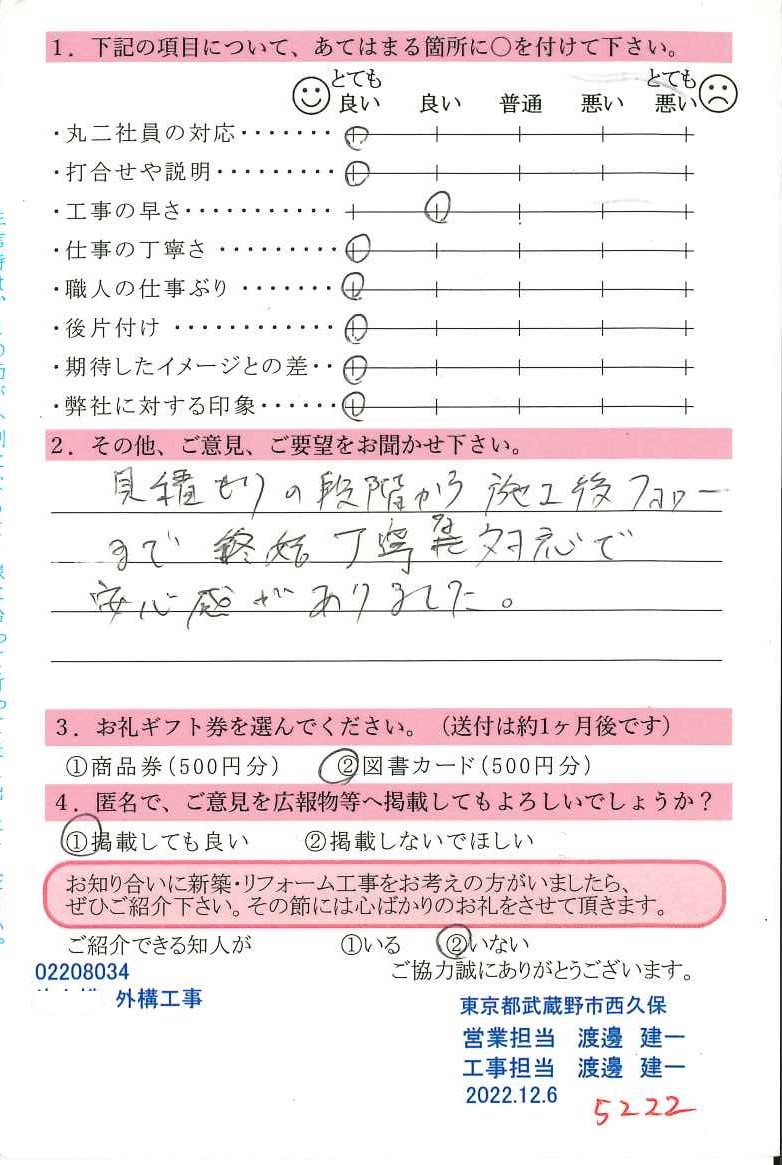 1．下記の項目について、あてはまる箇所に○を付けて下さい。
とても とても
良い 良い 普通 悪い 悪い
・丸二社員の対応・・・・・・・
・打合せや説明・・・・・・・・・
・工事の早さ・・・・・・・・・・・
・仕事の丁寧さ ・・・・・・・・・
・職人の仕事ぶり ・・・・・・・
・後片付け ・・・・・・・・・・・・
・期待したイメージとの差・・
・弊社に対する印象・・・・・・
2．その他、ご意見、ご要望をお聞かせ下さい。
見積もりの段階から施工後フォロー
まで 終始 丁寧な対応で
安心感がありました。
3．お礼ギフト券を選んでください。（送付は約1ヶ月後です）
①商品券(500円分） ②図書カード(500円分）
4．匿名で、ご意見を広報物等へ掲載してもよろしいでしょうか？
①掲載しても良い ②掲載しないでほしい
お知り合いに新築・リフォーム工事をお考えの方がいましたら、
ぜひご紹介下さい。その節には心ばかりのお礼をさせて頂きます。
ご紹介できる知人が ①いる ②いない
ご協力誠にありがとうございます。
02208034
外構工事
東京都武蔵野市西久保
営業担当 渡邊 建一
工事担当 渡邊 建一
2022.12.6
5222